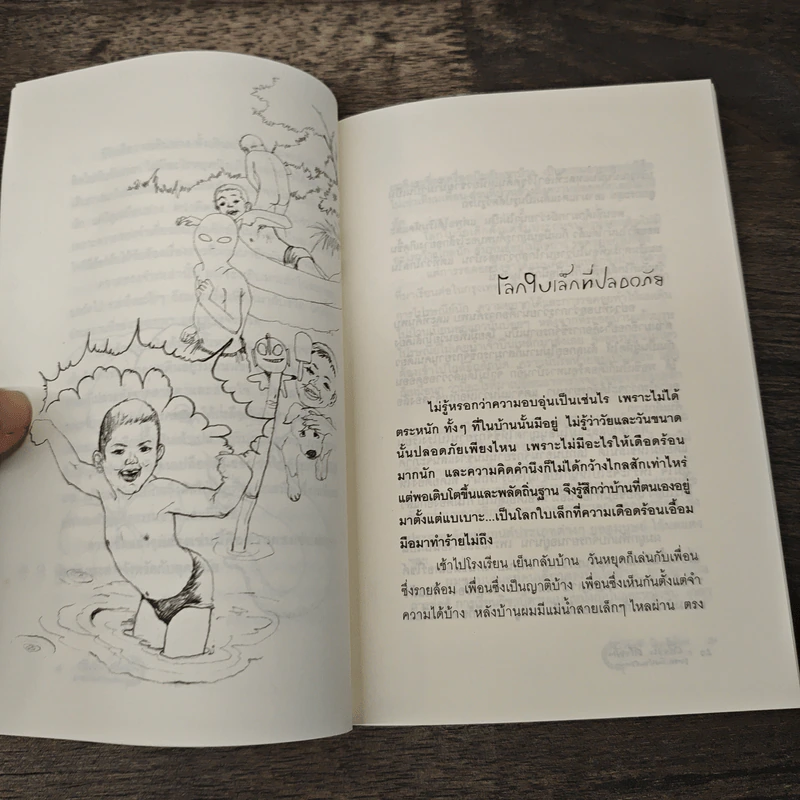 โลกใบเล็กที่ปลอดภัย
ไม่รู้หรอกว่าความอบอุ่นเป็นเช่นไร เพราะไม่ได้
ตระหนัก ทั้งๆ ที่ในบ้านนั้นมีอยู่ ไม่รู้ว่าวัยและวันขนาด
นั้นปลอดภัยเพียงไหน เพราะไม่มีอะไรให้เดือดร้อน
มากนัก และความคิดคำนึงก็ไม่ได้กว้างไกลสักเท่าไหร่
แต่พอเติบโตขึ้นและพลัดถิ่นฐาน จึงรู้สึกว่าบ้านที่ตนเองอยู่
มาตั้งแต่แบเบาะ...เป็นโลกใบเล็กที่ความเดือดร้อนเอื้อม
มือมาทำร้ายไม่ถึง
เช้าไปโรงเรียน เย็นกลับบ้าน วันหยุดก็เล่นกับเพื่อน
ซึ่งรายล้อม เพื่อนซึ่งเป็นญาติบ้าง เพื่อนซึ่งเห็นกันตั้งแต่จำ
ความได้บ้าง หลังบ้านผมมีแม่น้ำสายเล็กๆ ไหลผ่าน ตรง